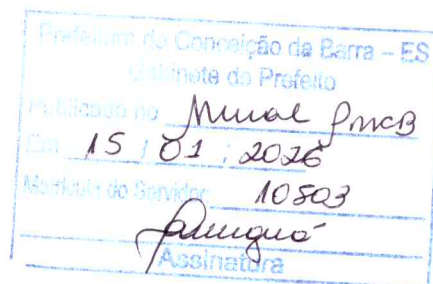 Prefeitura de Conceição da Barra – ES
Gabinete do Prefeito
Publicado no Mural PMCB
Em 15 / 01 / 2026
Matrícula do Servidor: 10503
Assinatura